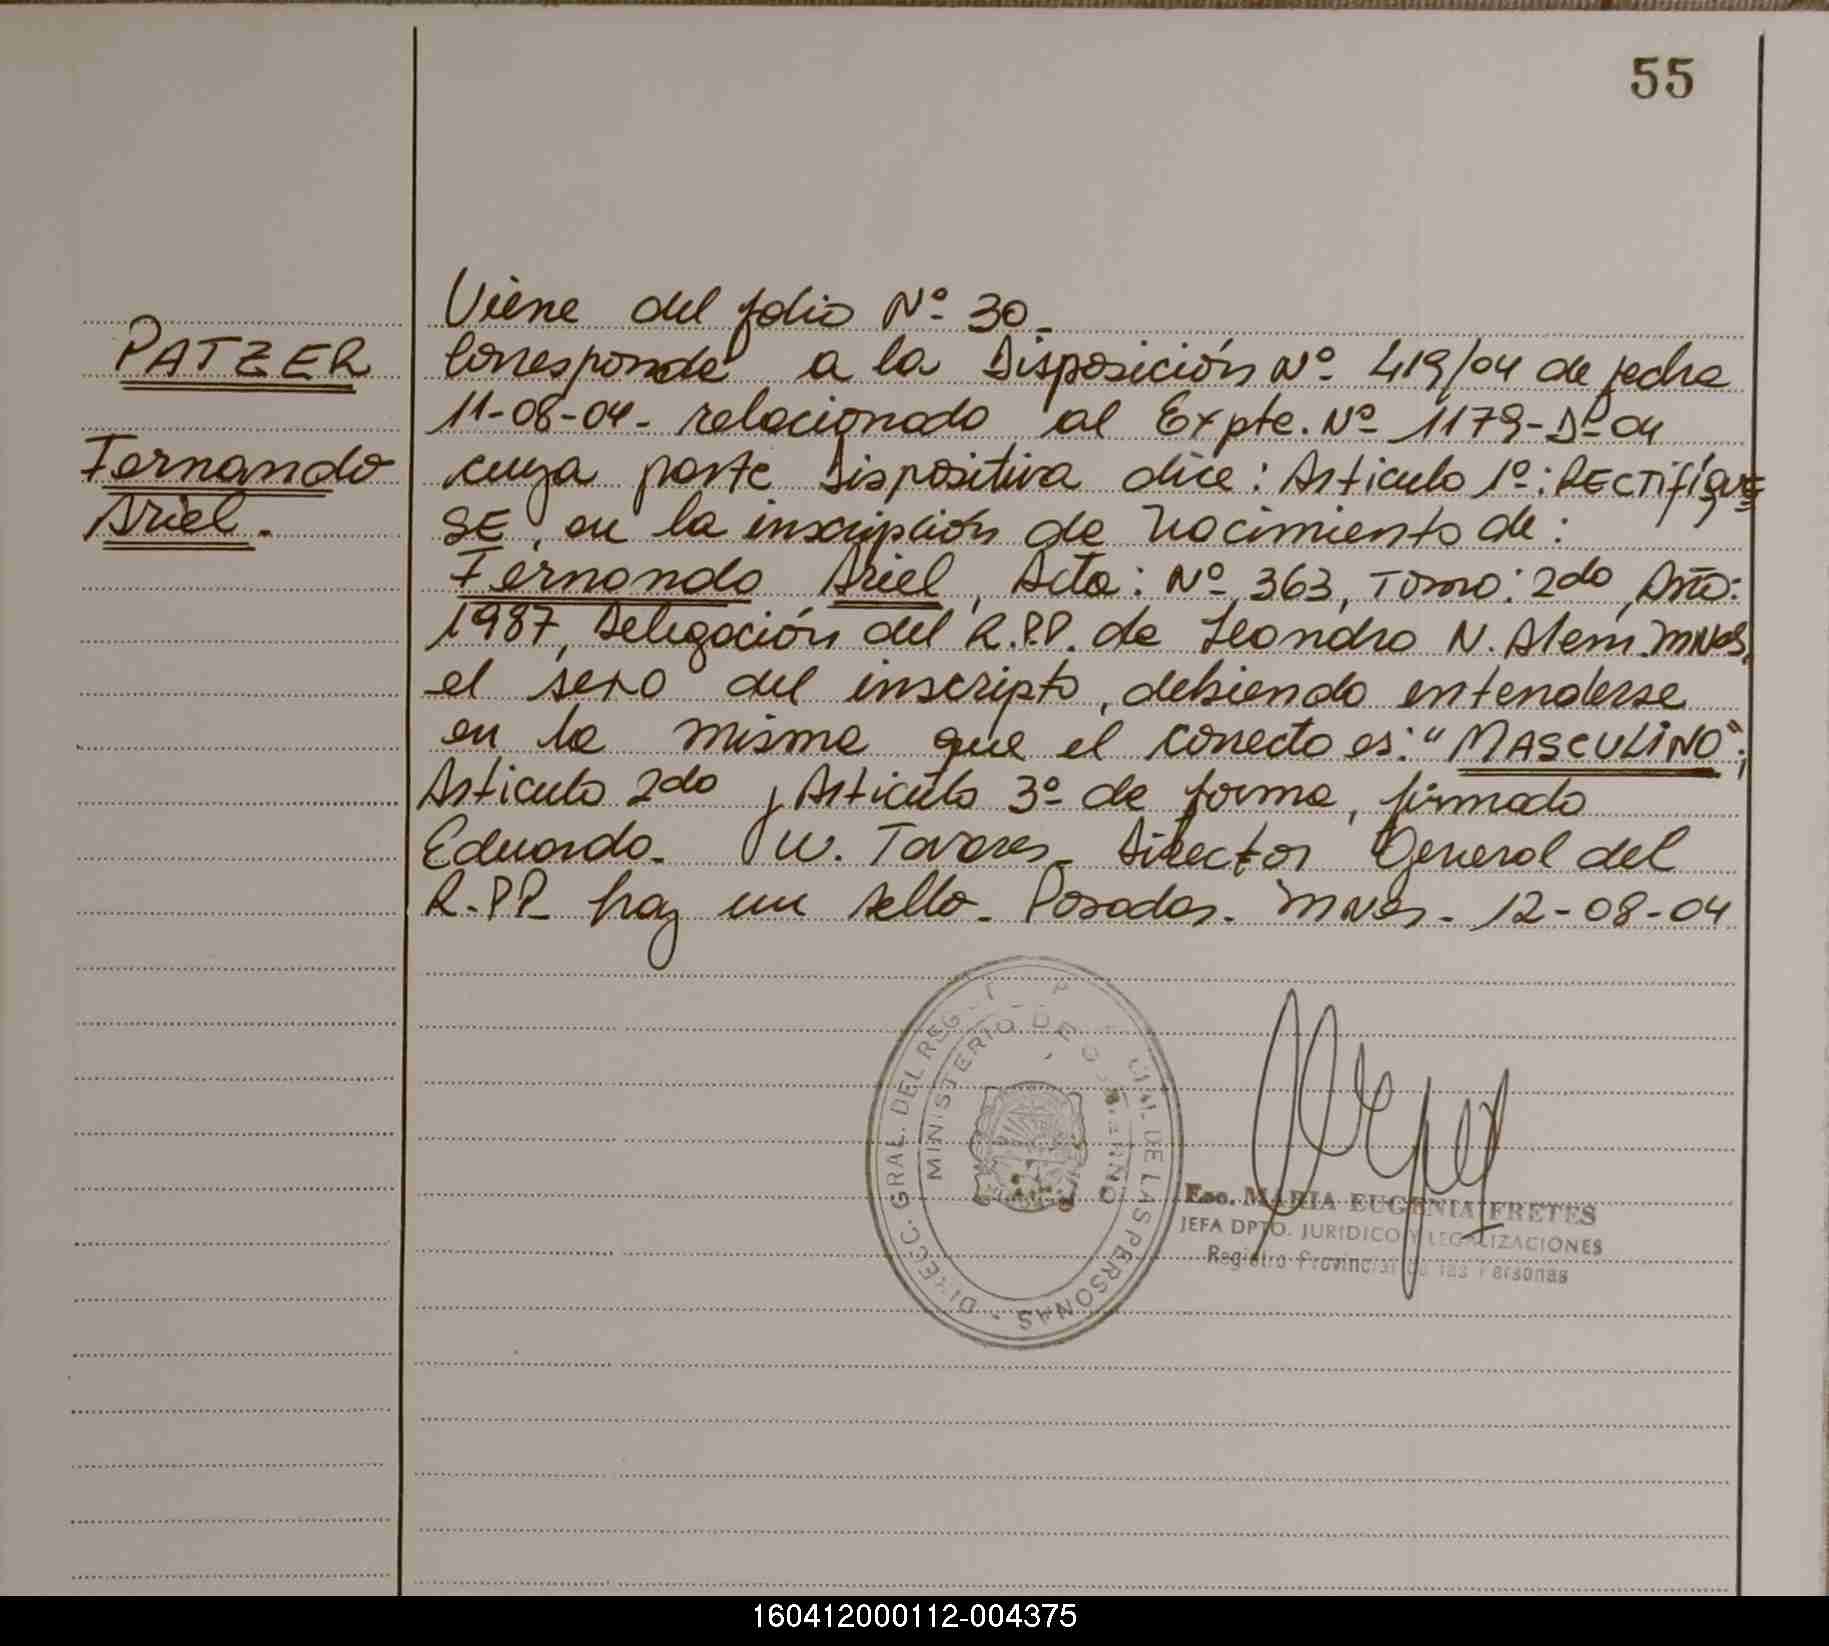 55
Viene del folio Nº 30-
PATZER
Corresponde a la Disposición Nº 419/04 de fecha
11-08-04- relacionado al Expte. Nº 1179-Dº-04
Fernando
cuya parte Dispositiva dice: Articulo 1º: RECTIFÍQUE
Ariel.-
SE, en la inscripción de Nacimiento de:
Fernando Ariel, Acta: Nº 363, Tomo: 2do, Año:
1987, Delegación del R.P.P. de Leandro N. Alem. Mnes,
el sexo del inscripto, debiendo entenderse
en la misma que el correcto es: "MASCULINO";
Articulo 2do y Articulo 3º de forma, firmado
Eduardo- W. Tavares- Director General del
R.PP- hay un sello- Posadas- Mnes- 12-08-04
DIRECC. GRAL. DEL REG. DE LAS PERSONAS
MINISTERIO DE GOBIERNO
Esc. MARIA EUGENIA FRETES
JEFA DPTO. JURIDICO Y LEGALIZACIONES
Registro Provincial de las Personas
160412000112-004375